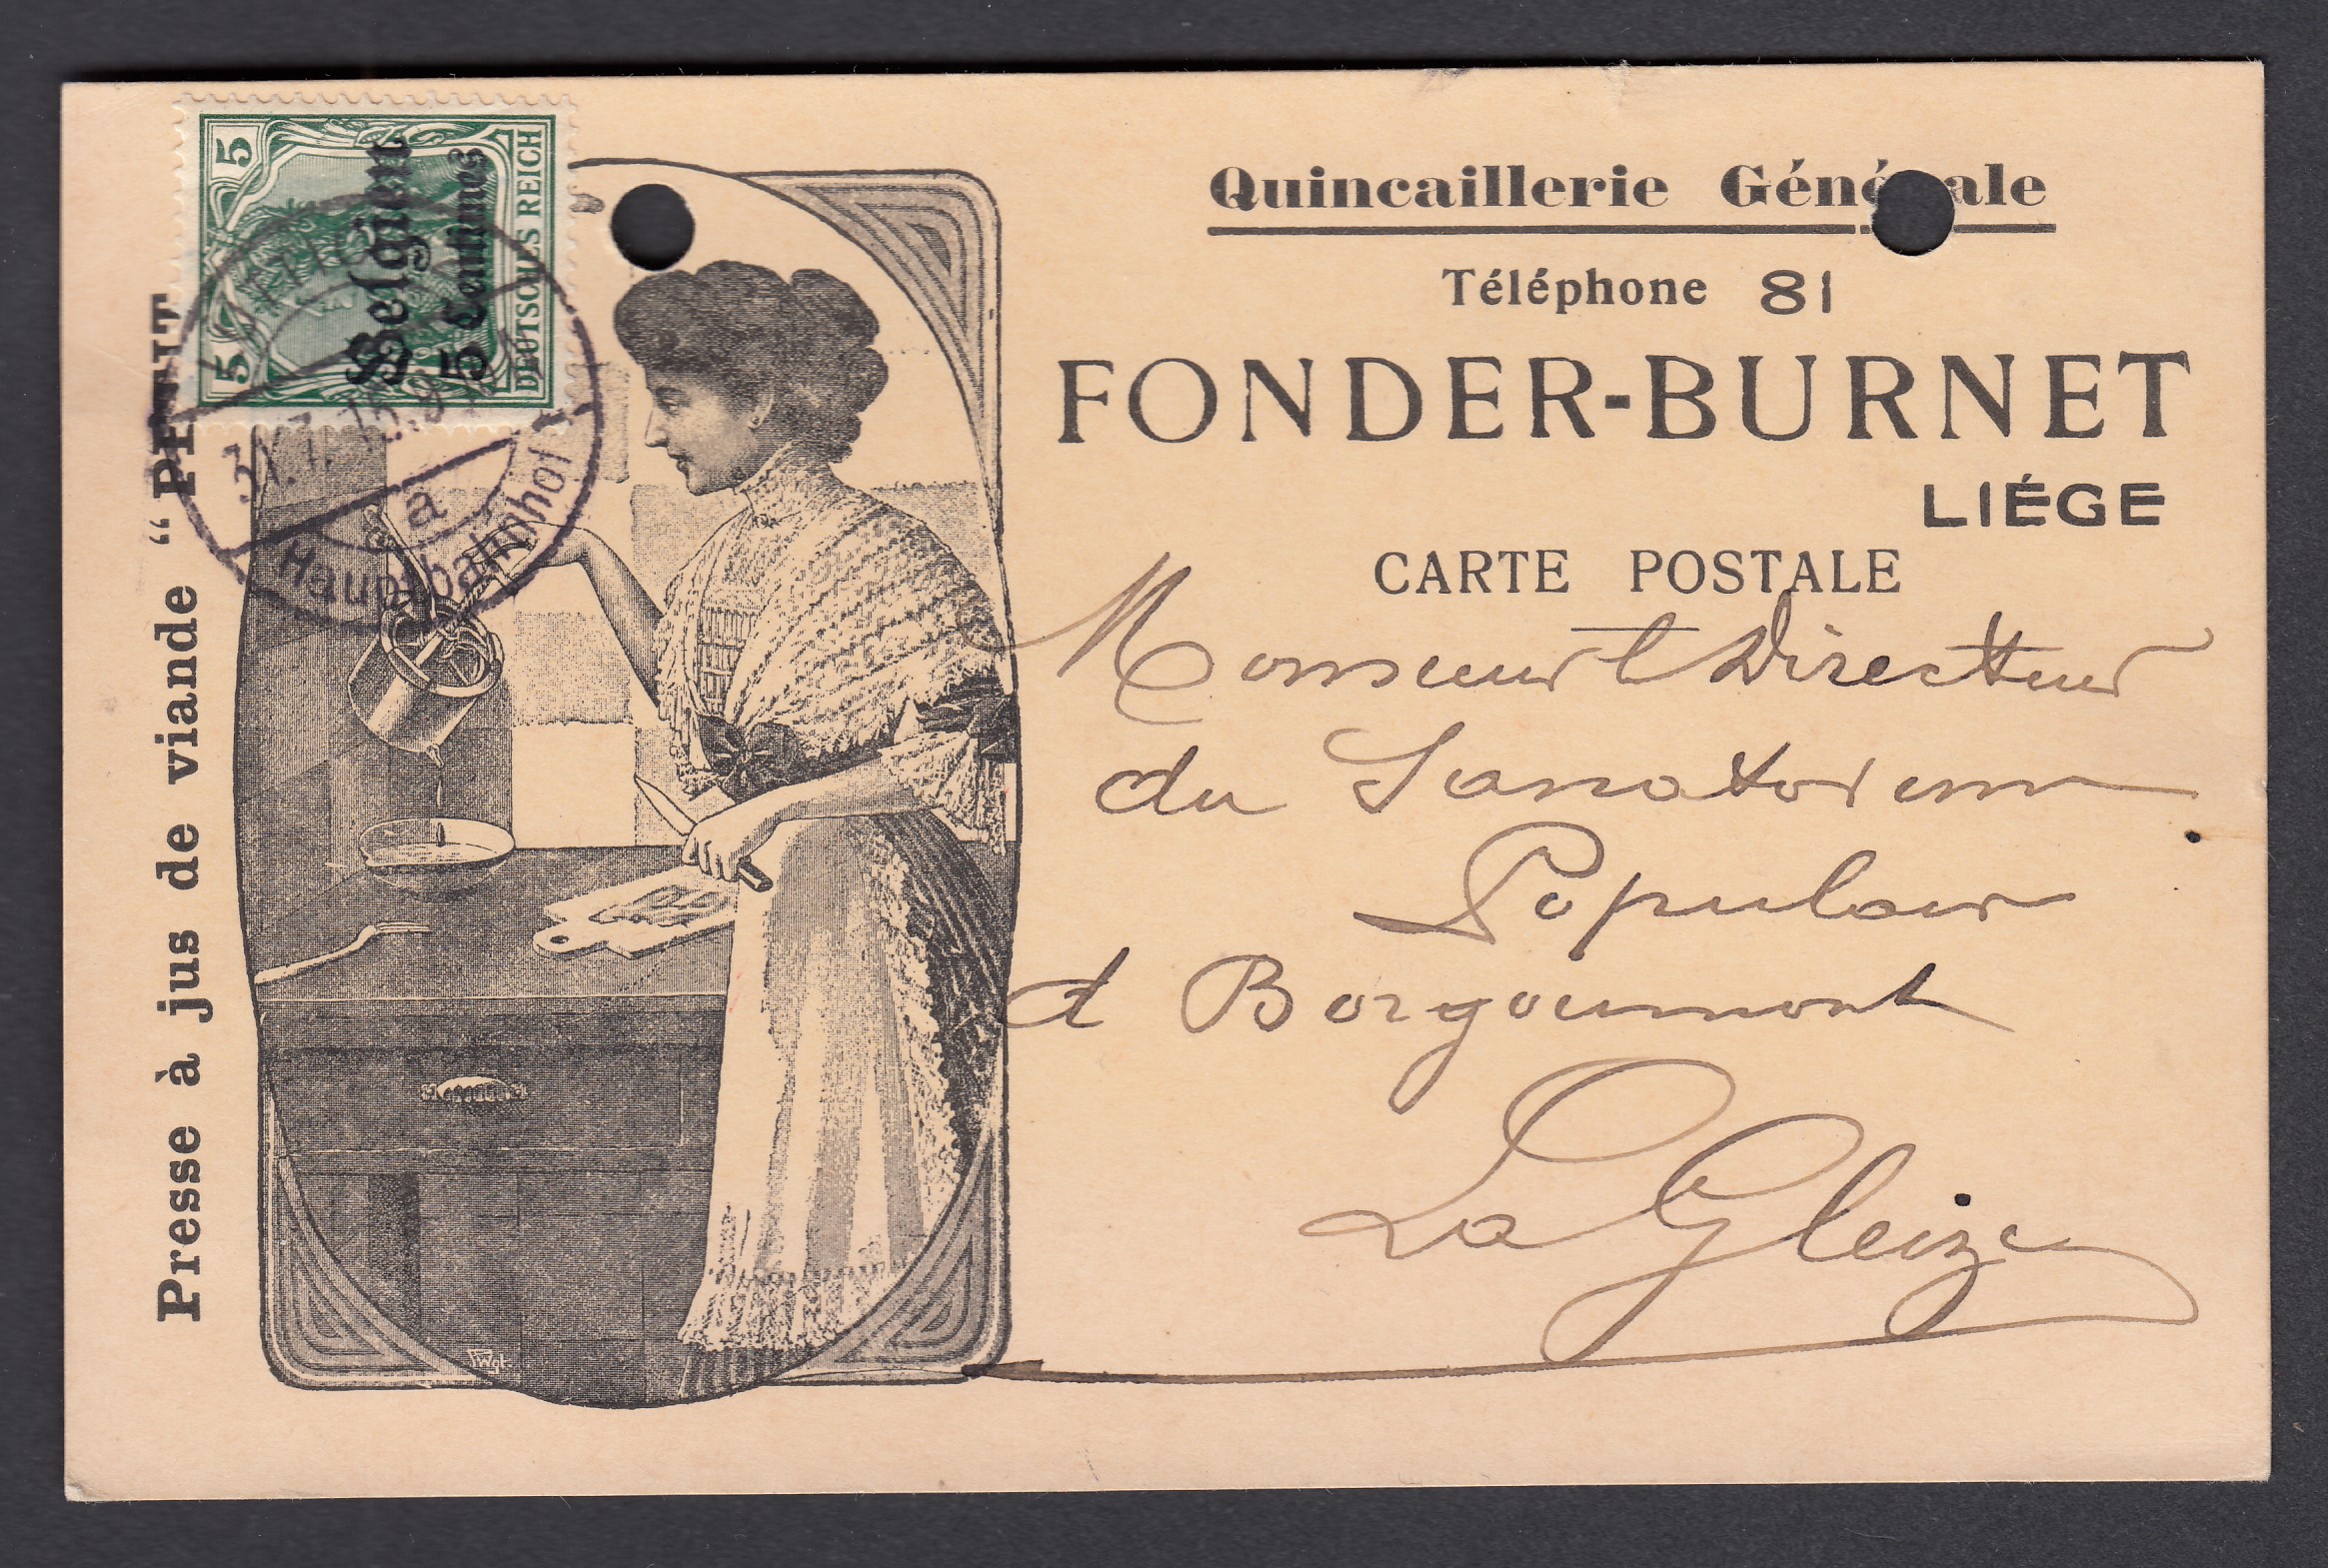 5 5
DEUTSCHES REICH
Belgien
5 Centimes
31.7.15.8
a
Hauptbahnhof
Presse à jus de viande "
Quincaillerie Générale
Téléphone 81
FONDER-BURNET
LIÉGE
CARTE POSTALE
Monsieur l Directeur
du Sanatorium
Populair
d Borgoumont
La Gleize